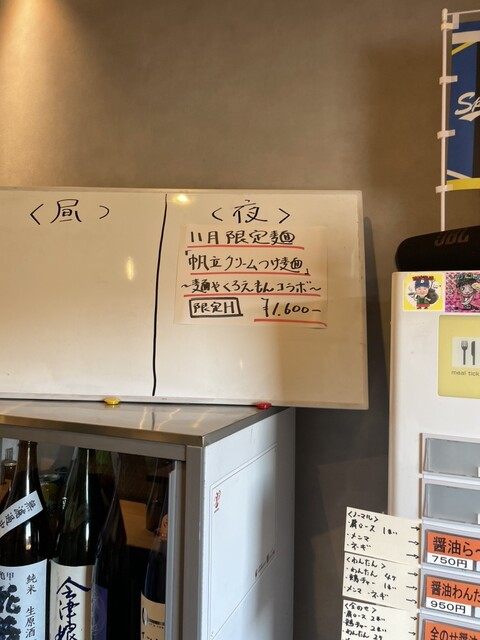 〈昼〉
〈夜〉
11月限定麺
「帆立クリームつけ麺」
~麺やくろえもんコラボ~
限定H ¥1,600-
JBL
meal tick
〈ノーマル〉
・肩ロース 1枚
・メンマ
・ネギ
〈わんたん〉
・メンマ・ネギ
〈全のせ〉
・肩ロース 2枚
醤油ら
750円
醤油わんた
950円
全のせ醤
純米
生原酒
会津娘